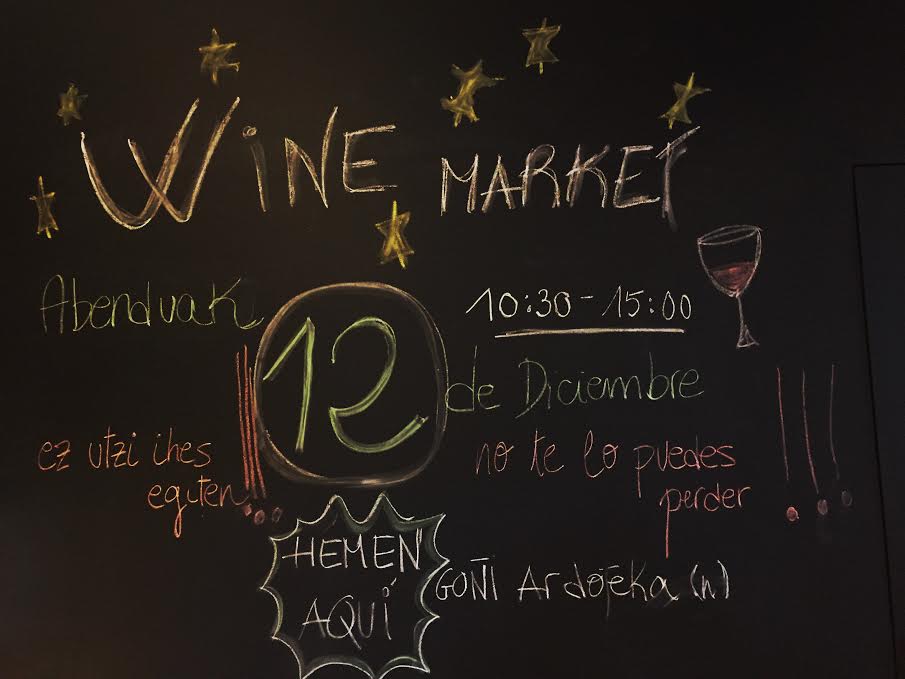 WiNE MARKET
Abenduak 12 de Diciembre
10:30 - 15:00
ez utzi ihes
egiten !!!
no te lo puedes
perder !!!
HEMEN
AQUÍ
GOÑI Ardoteka (n)